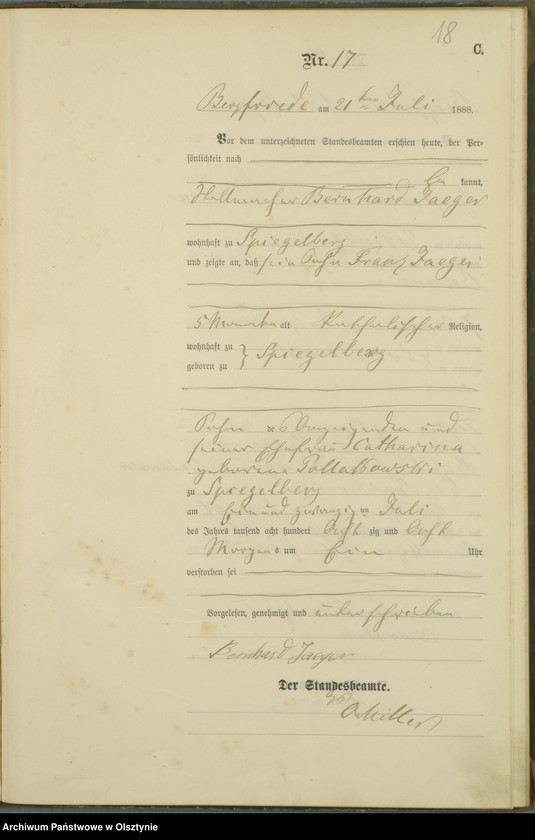 18
C.
Nr. 17
Bergfriede am 21ten Juli 1888.
Vor dem unterzeichneten Standesbeamten erschien heute, der Per-
sönlichkeit nach
kannt,
Bernhard Jaeger
wohnhaft zu Spiegelberg
und zeigte an, daß sein Sohn Franz Jaeger
5 Monate alt Katholischer Religion,
wohnhaft zu
geboren zu } Spiegelberg
Sohn des Anzeigenden und
seiner Ehefrau Catharina
geborene Pollakowski
zu Spiegelberg
am ein und zwanzigsten Juli
des Jahres tausend acht hundert Acht zig und Acht
Morgens um Ein Uhr
verstorben sei
Vorgelesen, genehmigt und unterschrieben
Bernhard Jaeger
Der Standesbeamte.